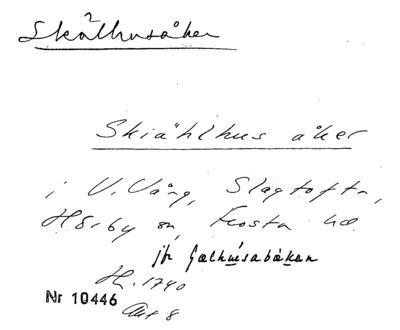 Skälhusåker
Skiählhus åker
i V. Vång, Slagtofta,
Hörby sn, Frosta hd
jfr Gælhúsabákan
H. 1740
Nr 10446
Akt 8